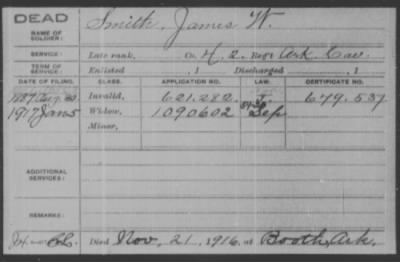 DEAD
NAME OF SOLDIER: Smith, James W.
SERVICE: Late rank, Co. H, 2 Reg't Ark Cav.
TERM OF SERVICE: Enlisted , 1 Discharged , 1
DATE OF FILING. CLASS. APPLICATION NO. LAW. CERTIFICATE NO.
1887 Aug 30 Invalid, 621.282 679.537
1917 Jan 5 Widow, 1090602
Minor,
ADDITIONAL SERVICES:
REMARKS:
Died Nov. 21, 1916, at Booth, Ark.